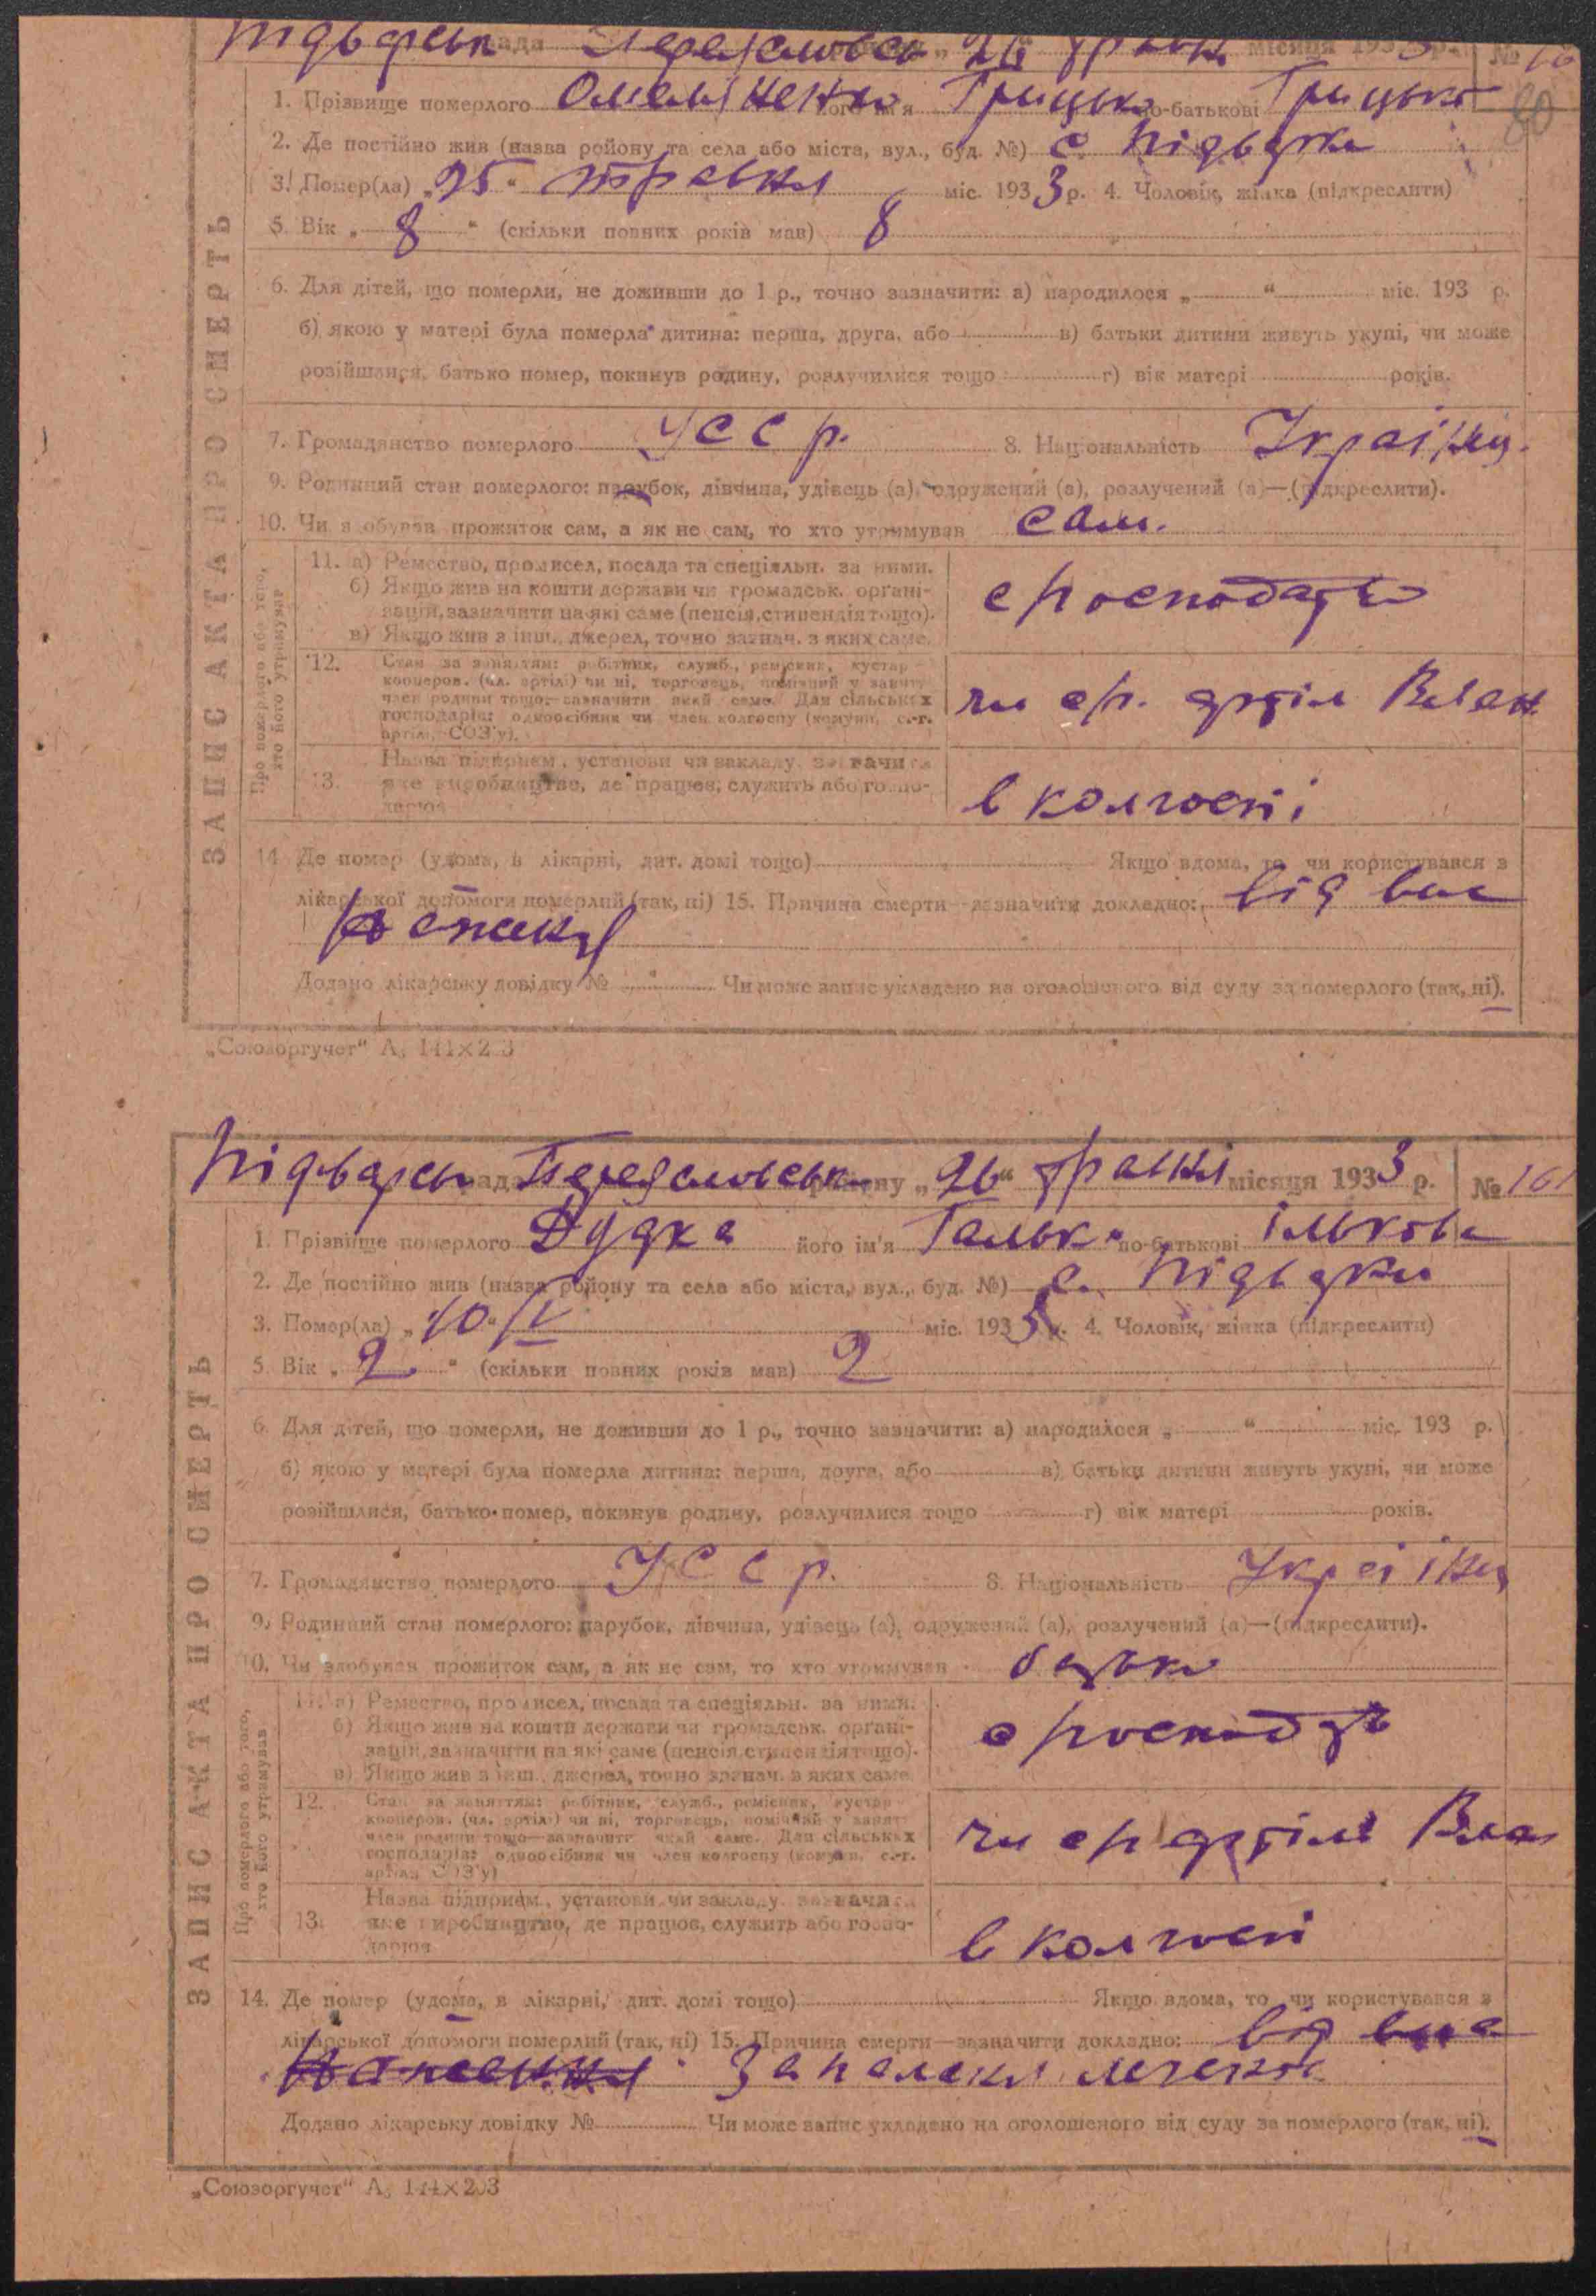 Підварськ рада Переяславськ району „26“ травня місяця 1933 р. №
80
ЗАПИС АКТА ПРО СМЕРТЬ
1. Прізвище померлого Омеляненко його ім'я Грицько по-батькові Грицько
2. Де постійно жив (назва району та села або міста, вул., буд. №) с. Підварки
3. Помер(ла) „25“ травня міс. 1933 р. 4. Чоловік, жінка (підкреслити)
5. Вік „ 8 “ (скільки повних років мав) 8
6. Для дітей, що померли, не доживши до 1 р., точно зазначити: а) народилося „ “ міс. 193 р.
б) якою у матері була померла дитина: перша, друга, або в) батьки дитини живуть укупі, чи може
розійшлися, батько помер, покинув родину, розлучилися тощо г) вік матері років.
7. Громадянство померлого УССР. 8. Національність Українц.
9. Родинний стан померлого: парубок, дівчина, удівець (а), одружений (а), розлучений (а)—(підкреслити).
10. Чи здобував прожиток сам, а як не сам, то хто утримував сам.
Про померлого або того, хто його утримував
11. а) Ремество, промисел, посада та спеціяльн. за ними.
б) Якщо жив на кошти держави чи громадськ. органі-
зацій, зазначити на які саме (пенсія, стипендія тощо).
в) Якщо жив з інш. джерел, точно зазнач. з яких саме.
12. Стан за заняттям: робітник, служб., ремісник, кустар
кооперов. (чл. артілі) чи ні, торговець, помічний у занят.
член родини тощо—зазначити який саме. Для сільських
господарів: одноосібник чи член колгоспу (комуни, с.-г.
артілі, СОЗ'у).
чл ср. артіл
13. Назва підприєм., установи чи закладу, зазначити
яке виробництво, де працює, служить або госпо-
дарює
в колгоспі
14. Де помер (удома, в лікарні, дит. домі тощо) Якщо вдома, то чи користувався з
лікарської допомоги померлий (так, ні) 15. Причина смерти—зазначити докладно: від
Додано лікарську довідку № Чи може запис укладено на оголошеного від суду за померлого (так, ні).
„Союзоргучет“ А5 144×203
Підварськ рада Переяславськ району „26“ травня місяця 1933 р. № 161
ЗАПИС АКТА ПРО СМЕРТЬ
1. Прізвище померлого Дудка його ім'я Галька по-батькові Ількова
2. Де постійно жив (назва району та села або міста, вул., буд. №) с. Підварки
3. Помер(ла) „10“ IV міс. 1933 р. 4. Чоловік, жінка (підкреслити)
5. Вік „ 2 “ (скільки повних років мав) 2
6. Для дітей, що померли, не доживши до 1 р., точно зазначити: а) народилося „ “ міс. 193 р.
б) якою у матері була померла дитина: перша, друга, або в) батьки дитини живуть укупі, чи може
розійшлися, батько помер, покинув родину, розлучилися тощо г) вік матері років.
7. Громадянство померлого УССР. 8. Національність Українц
9. Родинний стан померлого: парубок, дівчина, удівець (а), одружений (а), розлучений (а)—(підкреслити).
10. Чи здобував прожиток сам, а як не сам, то хто утримував батько
Про померлого або того, хто його утримував
11. а) Ремество, промисел, посада та спеціяльн. за ними.
б) Якщо жив на кошти держави чи громадськ. органі-
зацій, зазначити на які саме (пенсія, стипендія тощо).
в) Якщо жив з інш. джерел, точно зазнач. з яких саме
12. Стан за заняттям: робітник, служб., ремісник, кустар
кооперов. (чл. артілі) чи ні, торговець, помічний у занят.
член родини тощо—зазначити який саме. Для сільських
господарів: одноосібник чи член колгоспу (комуни, с.-г.
артілі, СОЗ'у)
чл ср артіл
13. Назва підприєм., установи чи закладу, зазначити
яке виробництво, де працює, служить або госпо-
дарює
в колгоспі
14. Де помер (удома, в лікарні, дит. домі тощо) Якщо вдома, то чи користувався з
лікарської допомоги померлий (так, ні) 15. Причина смерти—зазначити докладно: від
Запаления легених
Додано лікарську довідку № Чи може запис укладено на оголошеного від суду за померлого (так, ні).
„Союзоргучет“ А5 144×203